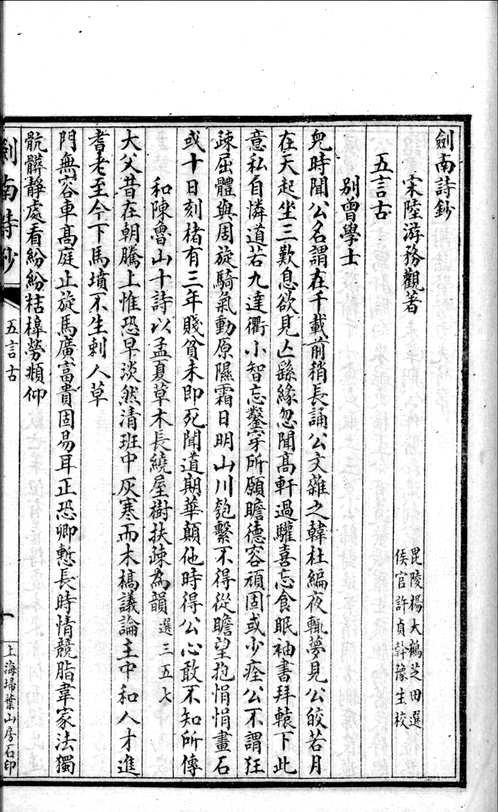 劍南詩鈔
宋陸游務觀著
毘陵楊大鶴芝田選
侯官許貞幹豫生校
五言古
別曾學士
兒時聞公名謂在千載前稍長誦公文雜之韓杜編夜輒夢見公皎若月
在天起坐三歎息欲見亡繇緣忽聞高軒過驩喜忘食眠袖書拜轅下此
意私自憐道若九達衢小智忘鑿穿所願瞻德容頑固或少痊公不謂狂
疎屈體與周旋騎氣動原隰霜日明山川匏繫不得從瞻望抱悁悁畫石
或十日刻楮有三年賤貧未即死聞道期華顛他時得公心敢不知所傳
和陳魯山十詩以孟夏草木長繞屋樹扶疎為韻選三五七
大父昔在朝騰上惟恐早淡然清班中灰寒而木槁議論主中和人才進
耆老至今下馬墳不生刺人草
門無容車高庭止旋馬廣富貴固易耳正恐卿慙長時情競脂韋家法獨
骯髒靜處看紛紛桔槔勞頫仰
劍南詩鈔
五言古
一
上海掃葉山房石印